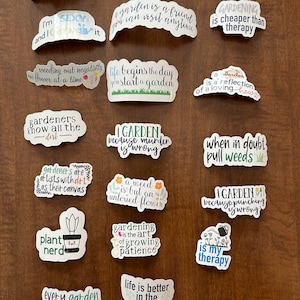 i'm
and i
it
a garden is a friend
you can visit anytime
GARDENING
is cheaper than
therapy
weeding out negativity
flower at a time
life begins the day
you start a garden
a garden
is a reflection
of a loving
gardeners
know all the
dirt
I GARDEN
because murder
is wrong
when in doubt
pull weeds
gardeners are
artists with dirt
as their canvas
a weed
is but an
unloved flower
I GARDEN
because punching
is wrong
plant
nerd
gardening
is the art
of growing
patience
is my
therapy
every garden
life is better
in the